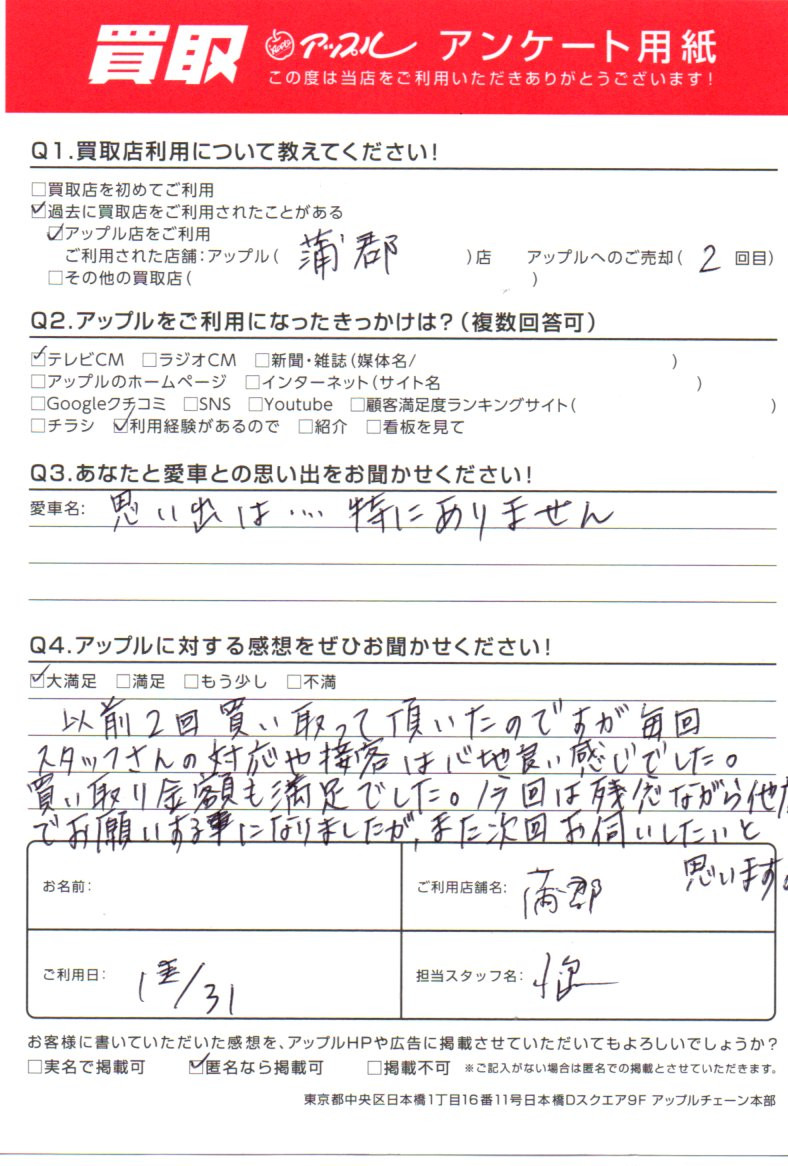 買取 アップル アンケート用紙
この度は当店をご利用いただきありがとうございます!
Q1.買取店利用について教えてください!
□買取店を初めてご利用
☑過去に買取店をご利用されたことがある
☑アップル店をご利用
ご利用された店舗:アップル( 蒲郡 )店 アップルへのご売却( 2 回目)
□その他の買取店( )
Q2.アップルをご利用になったきっかけは?(複数回答可)
☑テレビCM □ラジオCM □新聞・雑誌(媒体名/ )
□アップルのホームページ □インターネット(サイト名 )
□Googleクチコミ □SNS □Youtube □顧客満足度ランキングサイト( )
□チラシ ☑利用経験があるので □紹介 □看板を見て
Q3.あなたと愛車との思い出をお聞かせください!
愛車名: 思い出は… 特にありません
Q4.アップルに対する感想をぜひお聞かせください!
☑大満足 □満足 □もう少し □不満
以前2回買い取って頂いたのですが毎回
スタッフさんの対応や接客は心地良い感じでした。
買い取り金額も満足でした。今回は残念ながら他店
でお願いする事になりましたが、また次回お伺いしたいと
思います。
お名前: ご利用店舗名: 蒲郡
ご利用日: /31 担当スタッフ名:
お客様に書いていただいた感想を、アップルHPや広告に掲載させていただいてもよろしいでしょうか?
□実名で掲載可 ☑匿名なら掲載可 □掲載不可 ※ご記入がない場合は匿名での掲載とさせていただきます。
東京都中央区日本橋1丁目16番11号日本橋Dスクエア9F アップルチェーン本部